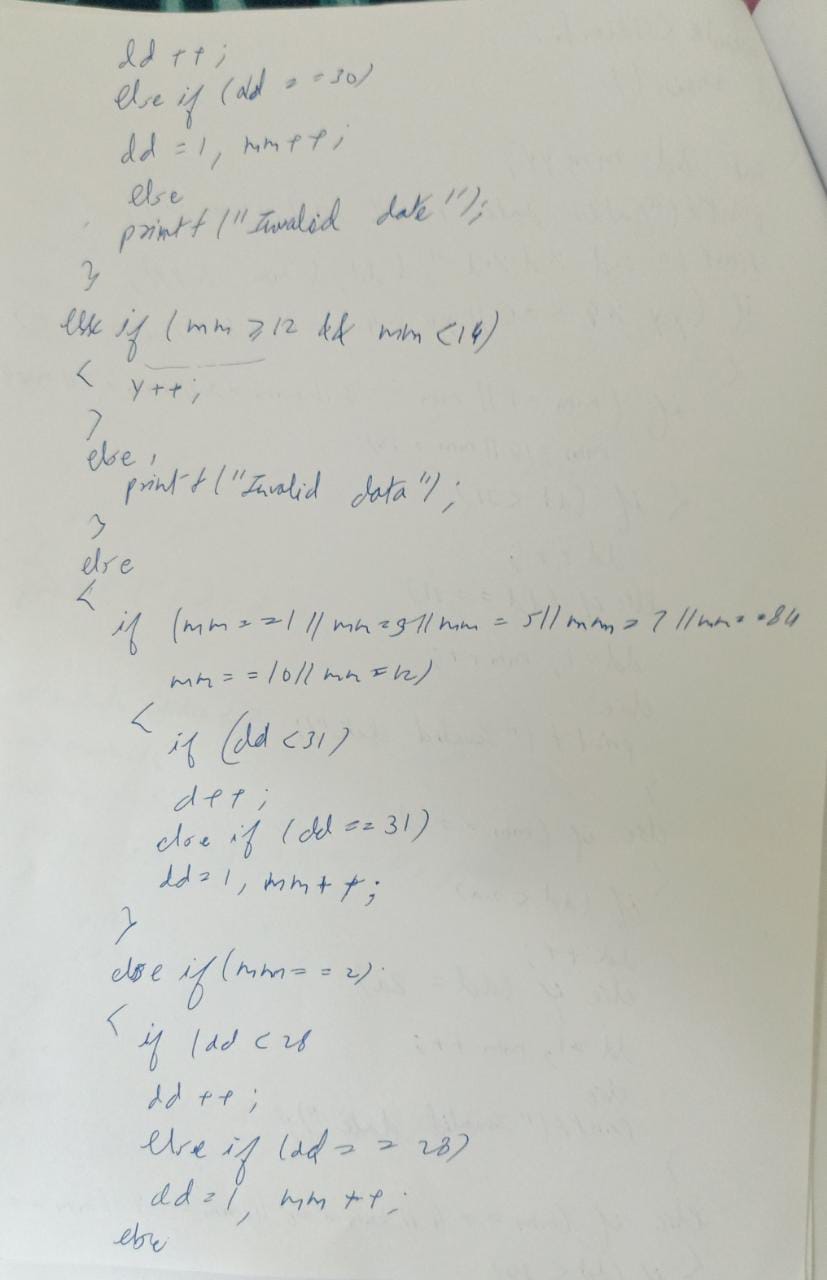 dd ++;
else if (dd = = 30)
dd = 1, mm++;
else
printf ("Invalid date");
}
else if (mm ≥ 12 && mm < 14)
{
y++;
}
else
printf ("Invalid data");
}
else
{
if (mm = = 1 || mm = 3 || mm = 5 || mm = 7 || mm = = 8 ||
mm = = 10 || mm = 12)
{
if (dd < 31)
d++;
else if (dd == 31)
dd = 1, mm++;
}
else if (mm = = 2)
{
if (dd < 28
dd ++;
else if (dd = = 28)
dd = 1, mm ++;
else